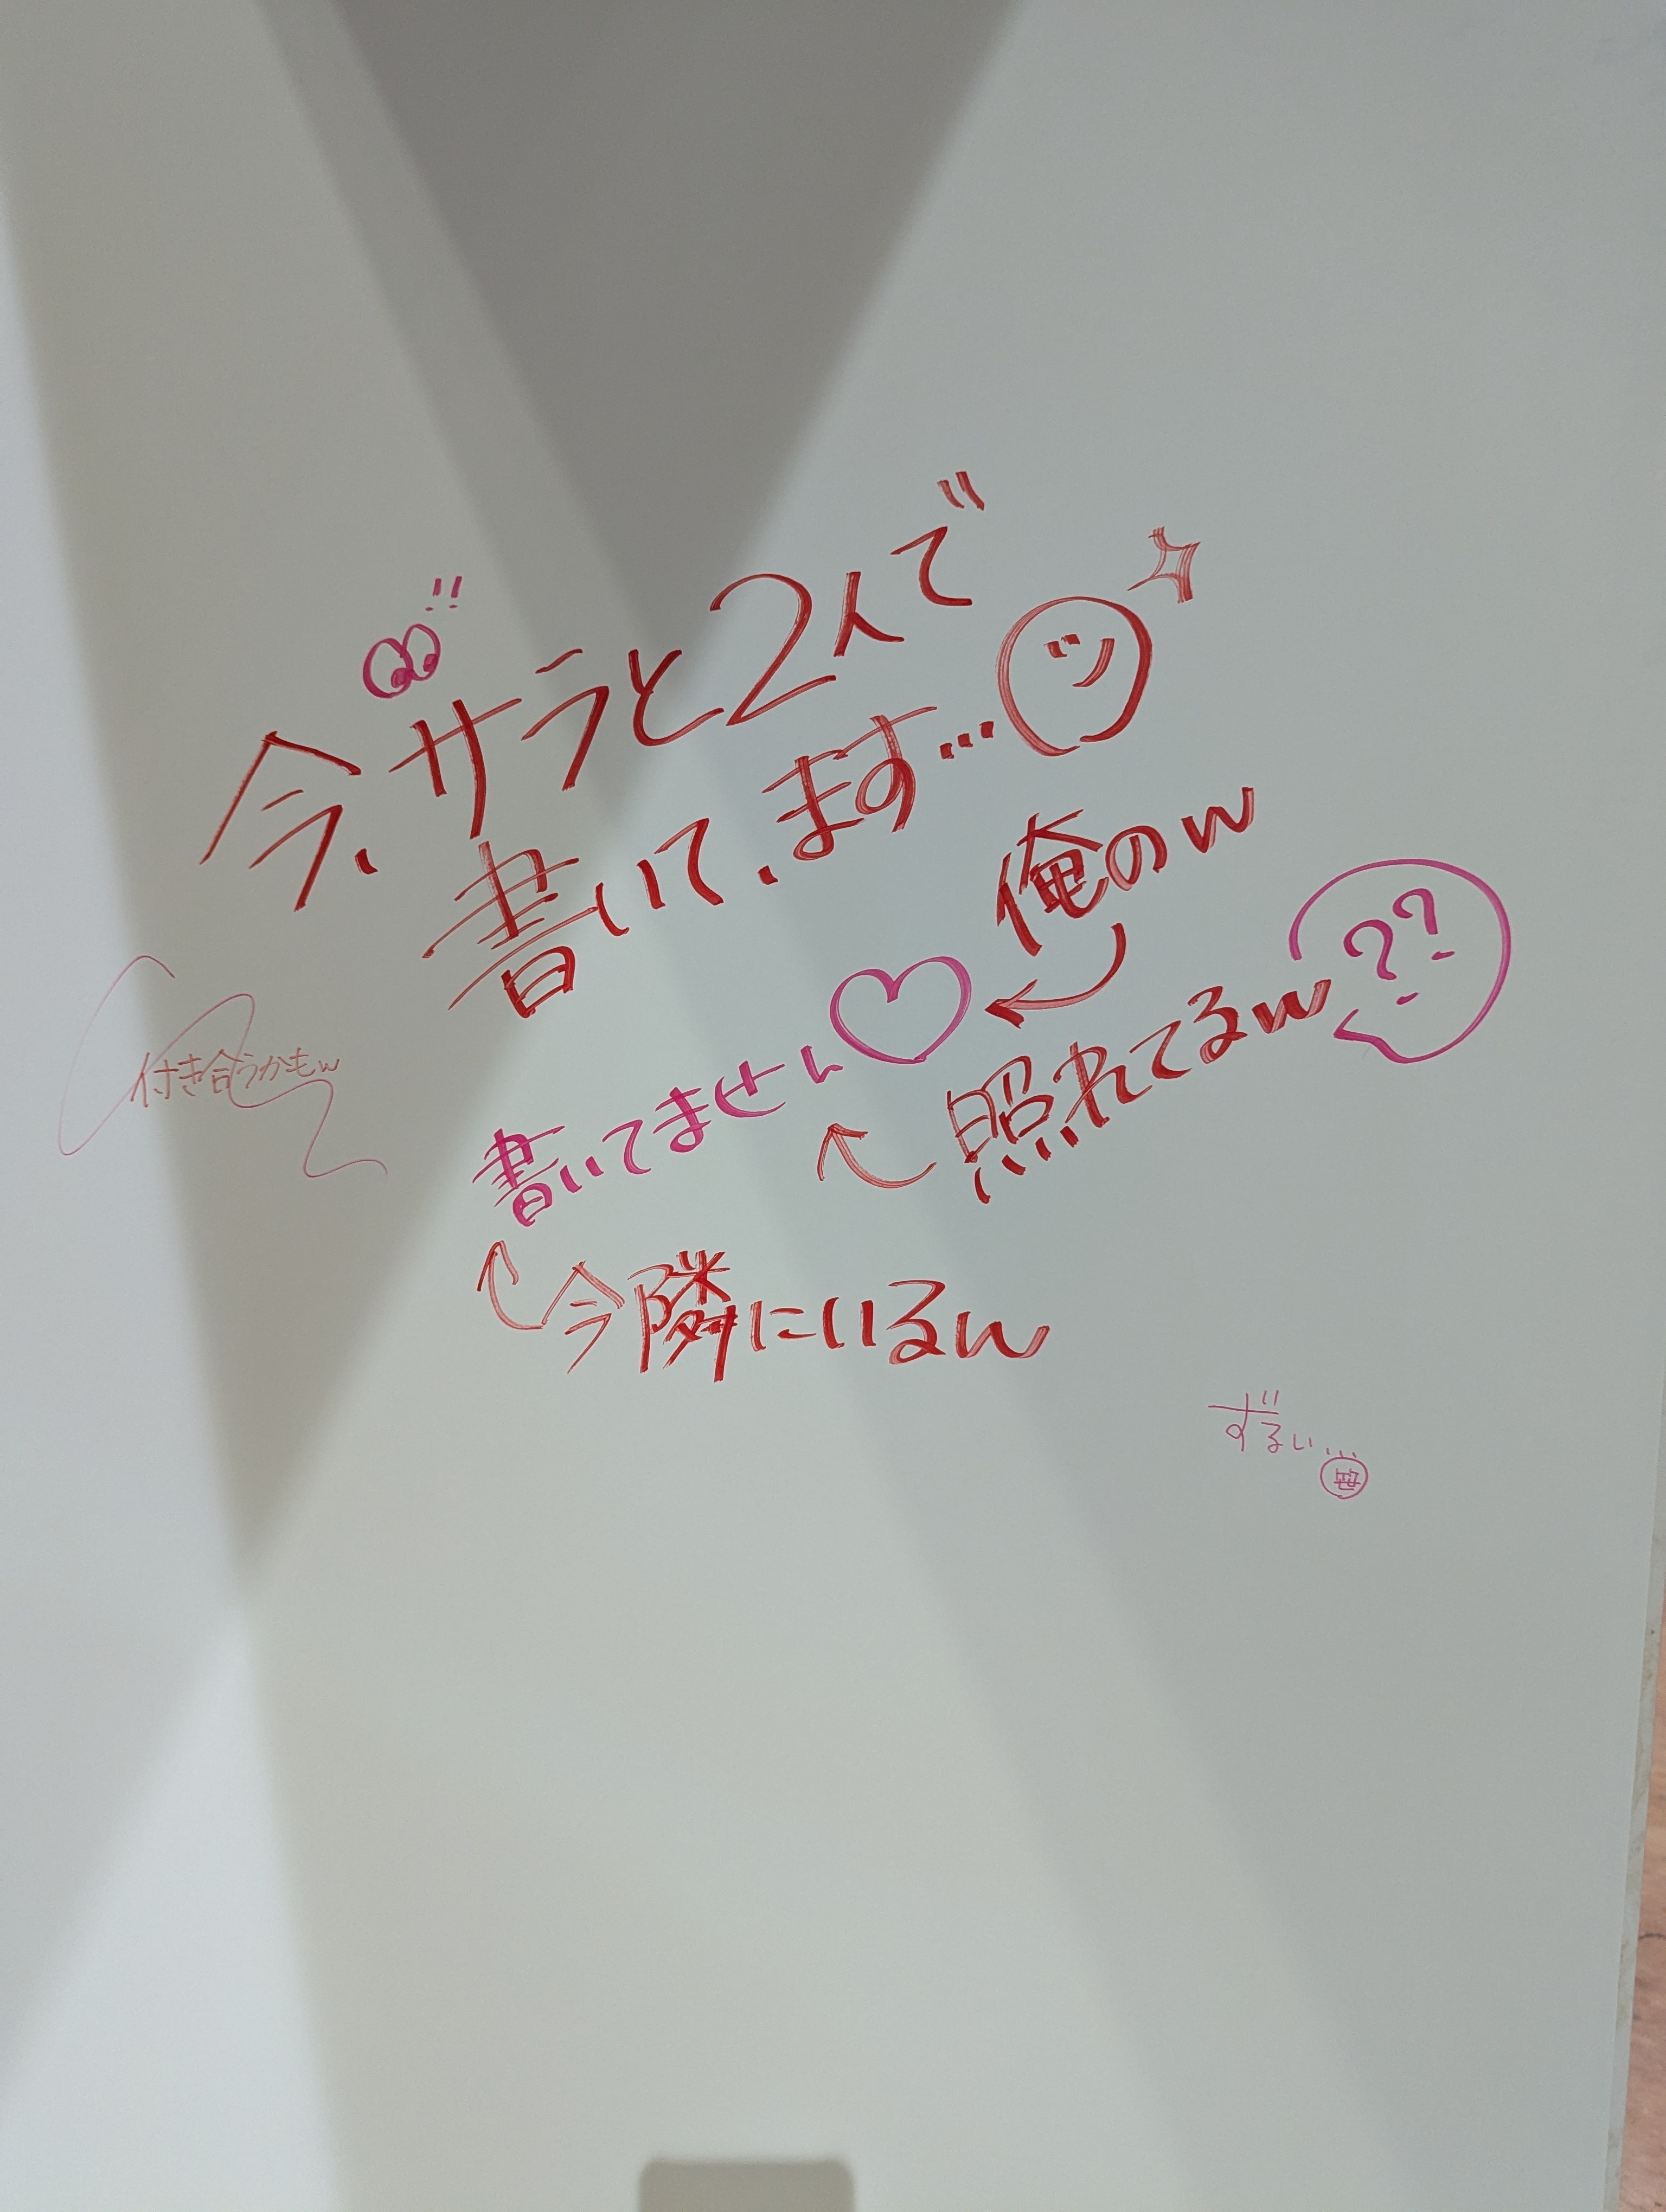 !!
今、サラと2人で
書いて、ます…
俺のw
??
付き合うかもw
書いてません♡
照れてるw
今隣にいるw
ずるい…